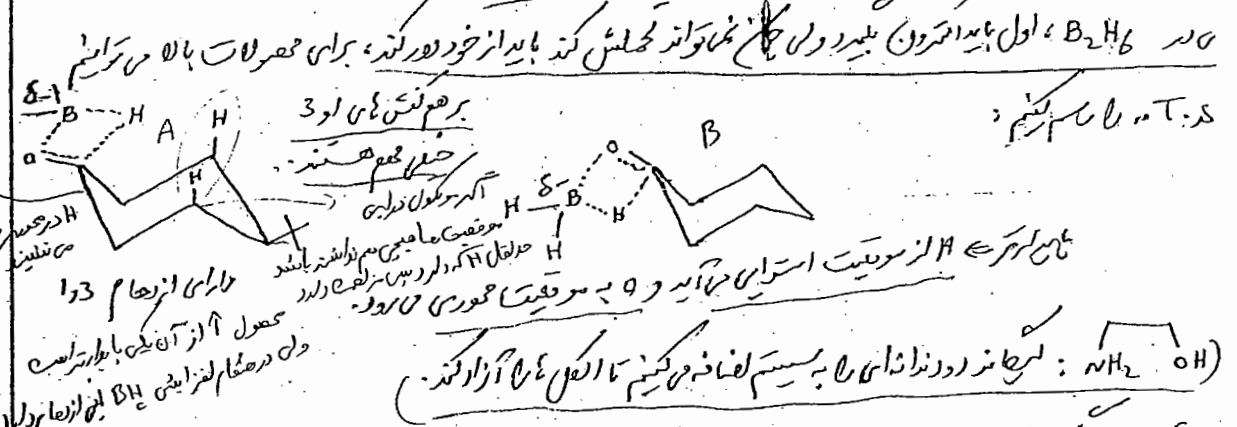 در B₂H₆ ، اول باید الکترون بگیرد ولی چون نمی‌تواند تحملش کند باید از خود دور کند، برای محصولات بالا می‌توانیم
T.S را رسم کنیم :
برهم‌کنش های 1و3
خیلی مهم هستند.
اگر مولکول
موقعیت ها هیچی هم نداشته باشد
حداقل H که دارد پس مزاحمت دارد
δ-
B H
A
H
H
O
B
O
H δ- B H
H
H در
می‌نشیند
دارای ازدحام 1و3
محصول از آن یکی پایدارتر است
ولی در هنگام افزایش BH این ازدحام
پایدارتر ⇐ H از موقعیت استوایی می‌آید و O به موقعیت محوری می‌رود.
(NH₂ OH : لیگاند دو دندانه‌ای را به سیستم اضافه می‌کنیم تا الکل ها را آزاد کند.)